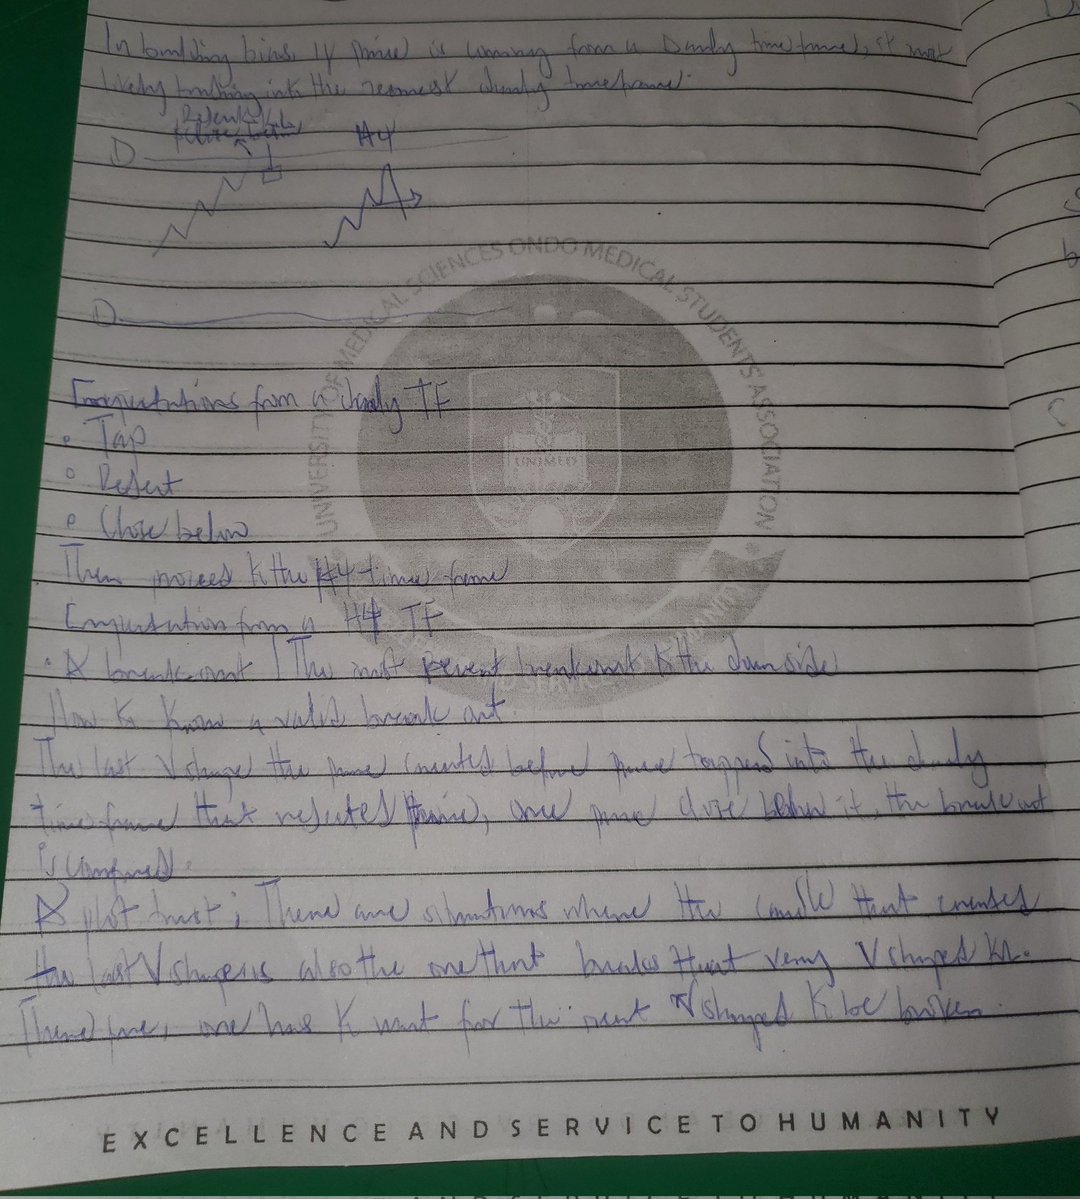 In building bias, If price is coming from a Daily timeframe, it most
likely trading into the recent daily timeframe.
Reject &
close below
D
H4
D
UNIVERSITY OF MEDICAL SCIENCES ONDO MEDICAL STUDENTS' ASSOCIATION
from a daily TF
UNIMED
• Tap
• Reject
• Close below
Then proceed to the H4 time frame
from a H4 TF
• A breakout / The most recent breakout to the down side
How to know a valid break out.
The last V shape the price created before price tapped into the daily
time frame that rejected price, once price close below it, the breakout
is confirmed.
A plot twist; There are situations where the candle that creates
the last V shape is also the one that breaks that very V shaped
Therefore, one has to wait for the next V shaped to be broken.
EXCELLENCE AND SERVICE TO HUMANITY